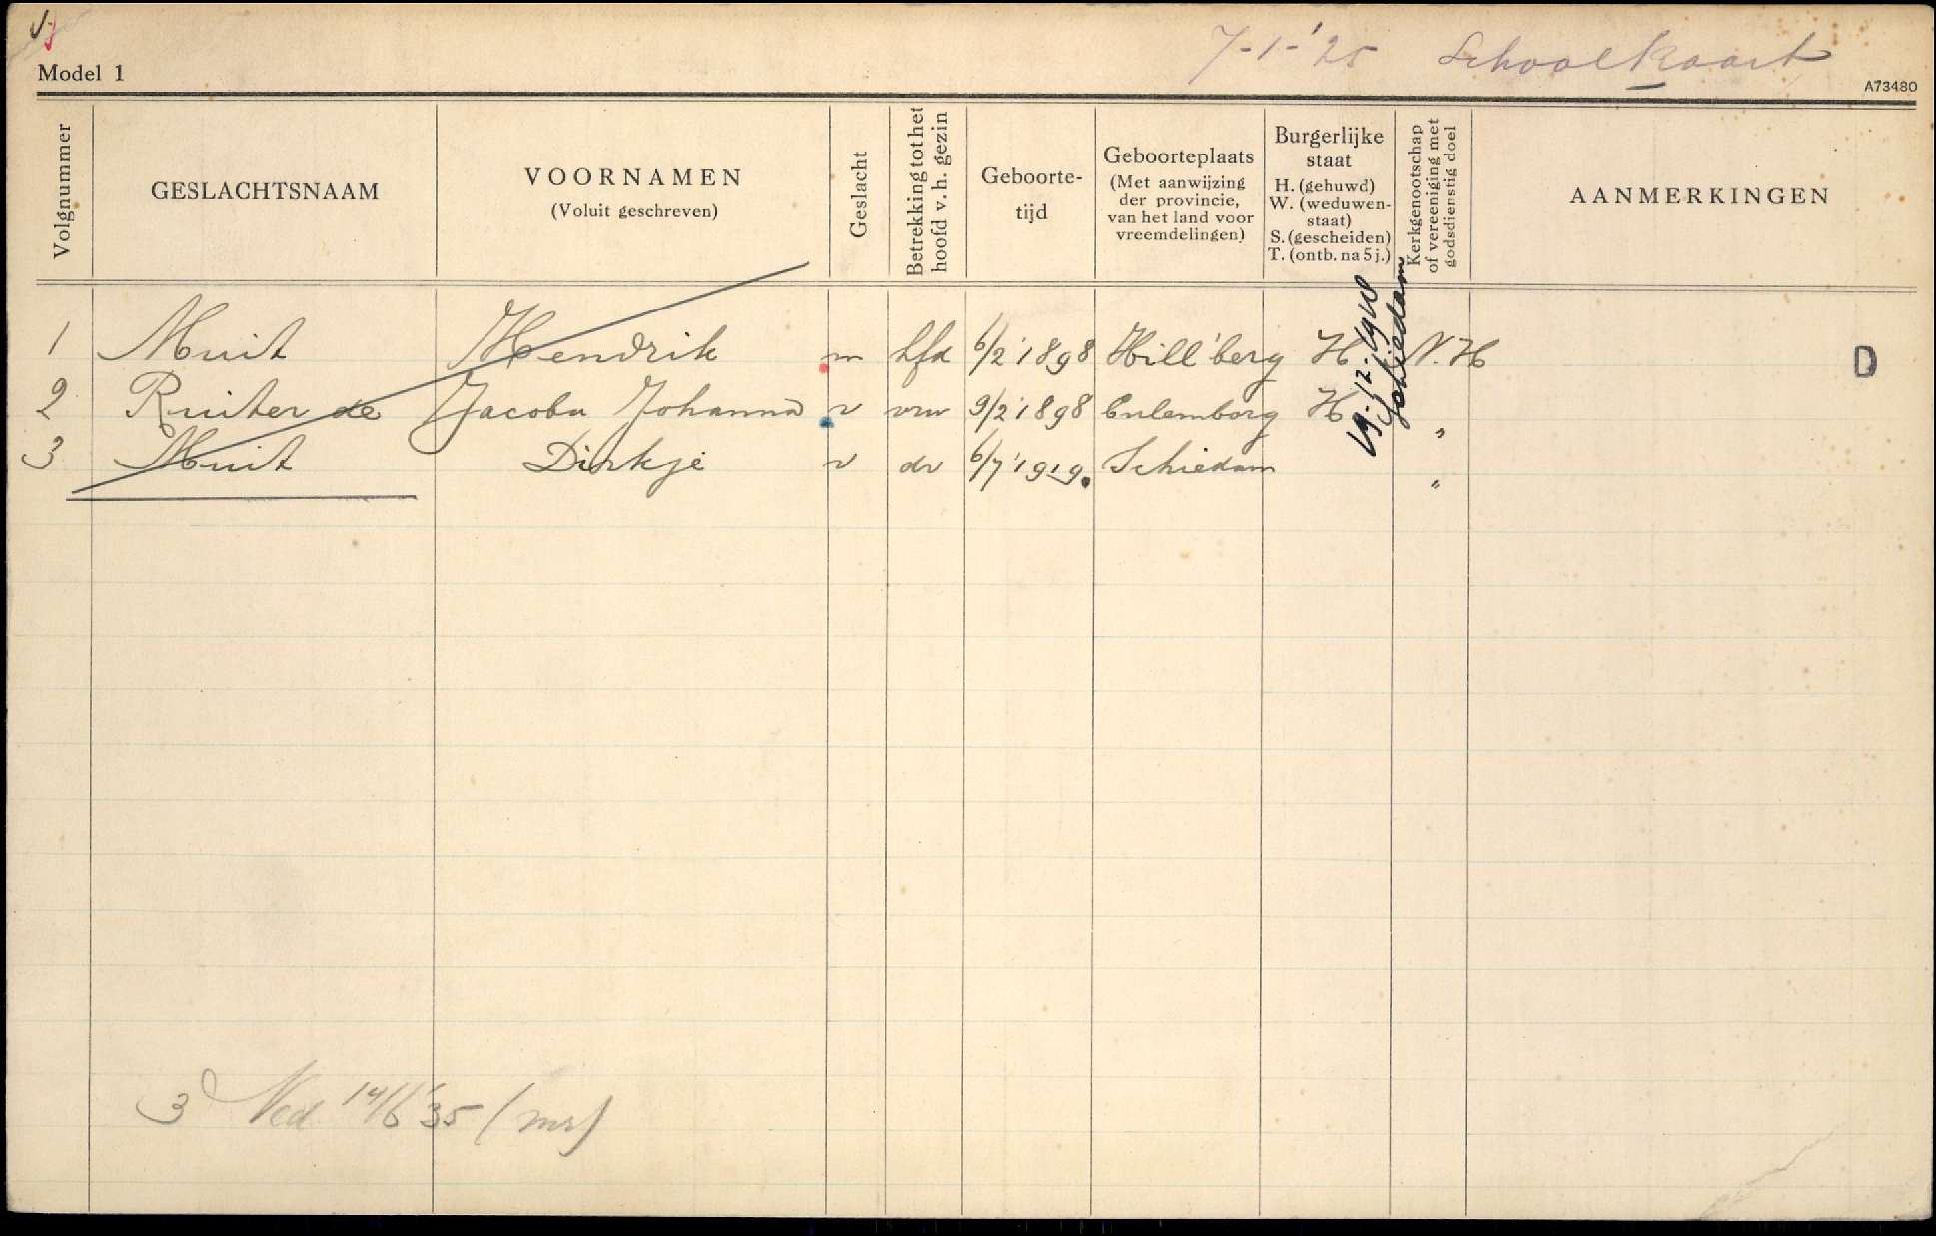 7-1-'25 Schoolkaart
Model 1
A73480
Volgnummer
GESLACHTSNAAM
VOORNAMEN
(Voluit geschreven)
Geslacht
Betrekking tot het
hoofd v. h. gezin
Geboorte-
tijd
Geboorteplaats
(Met aanwijzing
der provincie,
van het land voor
vreemdelingen)
Burgerlijke
staat
H. (gehuwd)
W. (weduwen-
staat)
S. (gescheiden)
T. (ontb. na 5 j.)
Kerkgenootschap
of vereeniging met
godsdienstig doel
AANMERKINGEN
1 Muit Hendrik m hfd 6/2 '1898 Hill'berg H N.H D
2 Ruiter de Jacoba Johanna v vrw 9/2 '1898 Culemborg H "
3 Muit Dirkje v dr 6/7 '1919. Schiedam "
19-12-1918
Schiedam
3 Ned 14/6 '35 (mr)